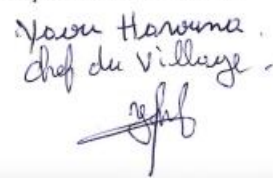 Yaou Harouna.
chef du Village.